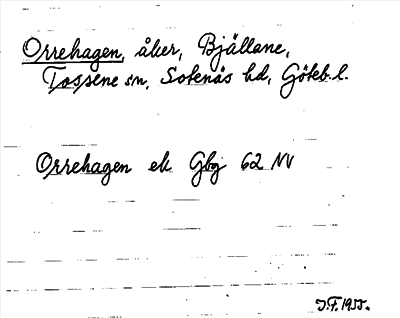 Orrehagen, åker, Bjällane,
Tossene sn, Sotenäs hd, Göteb. l.
Orrehagen ek Gbg 62 NV
J.F. 1955.